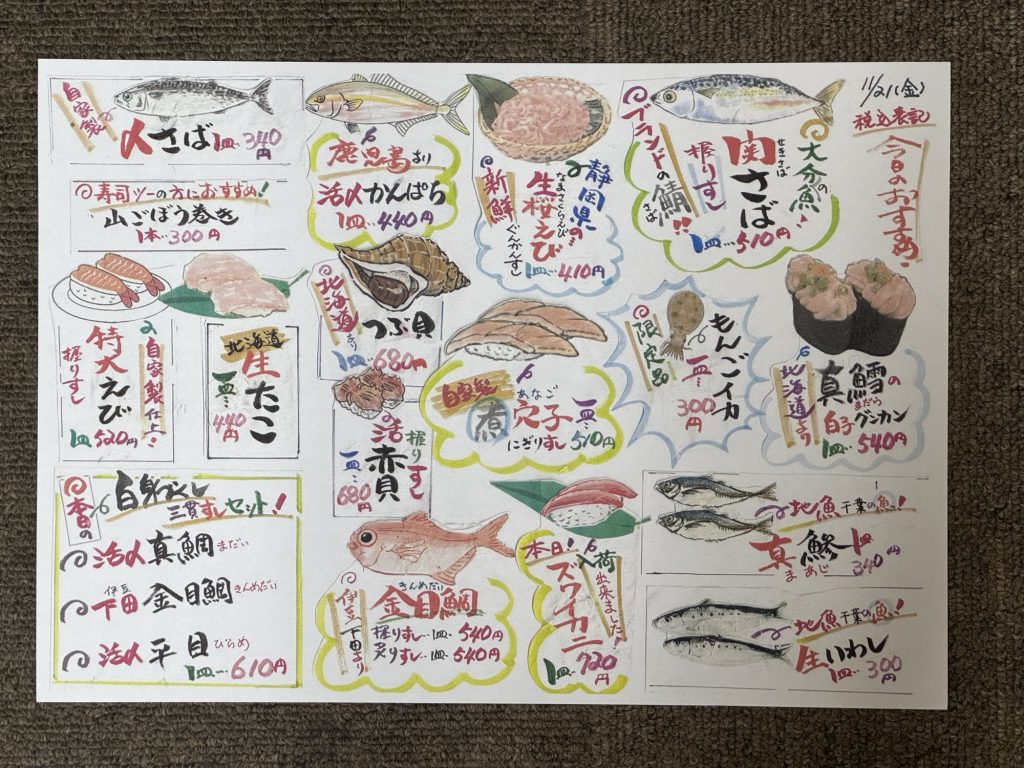 11/21(金)
税込表記
今日のおすすめ
自家製
〆さば 1皿… 340円
鹿児島より
活〆かんぱち
1皿… 440円
静岡県の
生桜えび
なまさくらえび
ぐんかんすし
新鮮
1皿… 410円
大分の魚!
関さば
せきさば
握りすし
ブランドの鯖!!
さば
1皿… 510円
寿司ツーの方におすすめ!
山ごぼう巻き
1本…300円
自家製仕上
特大えび
握りすし
1皿 520円
北海道
生たこ
一皿… 440円
北海道より
つぶ貝
1皿… 680円
活赤貝
握りすし
一皿… 680円
自家製
煮穴子
あなご
にぎりすし
一皿… 510円
限定品
もんごイカ
一皿… 300円
北海道より
真鱈の
まだら
白子グンカン
1皿… 540円
本日の
白身づくし
三貫すしセット!
活〆真鯛 まだい
伊豆
下田 金目鯛 きんめだい
活〆平目 ひらめ
1皿… 610円
きんめだい
金目鯛
伊豆下田より
握りすし…1皿… 540円
炙りすし…1皿… 540円
本日!入荷
出来ました!
ズワイカニ
1皿… 720円
地魚 千葉の魚!
真鯵
まあじ
1皿 340円
地魚 千葉の魚!
生いわし
1皿… 300円